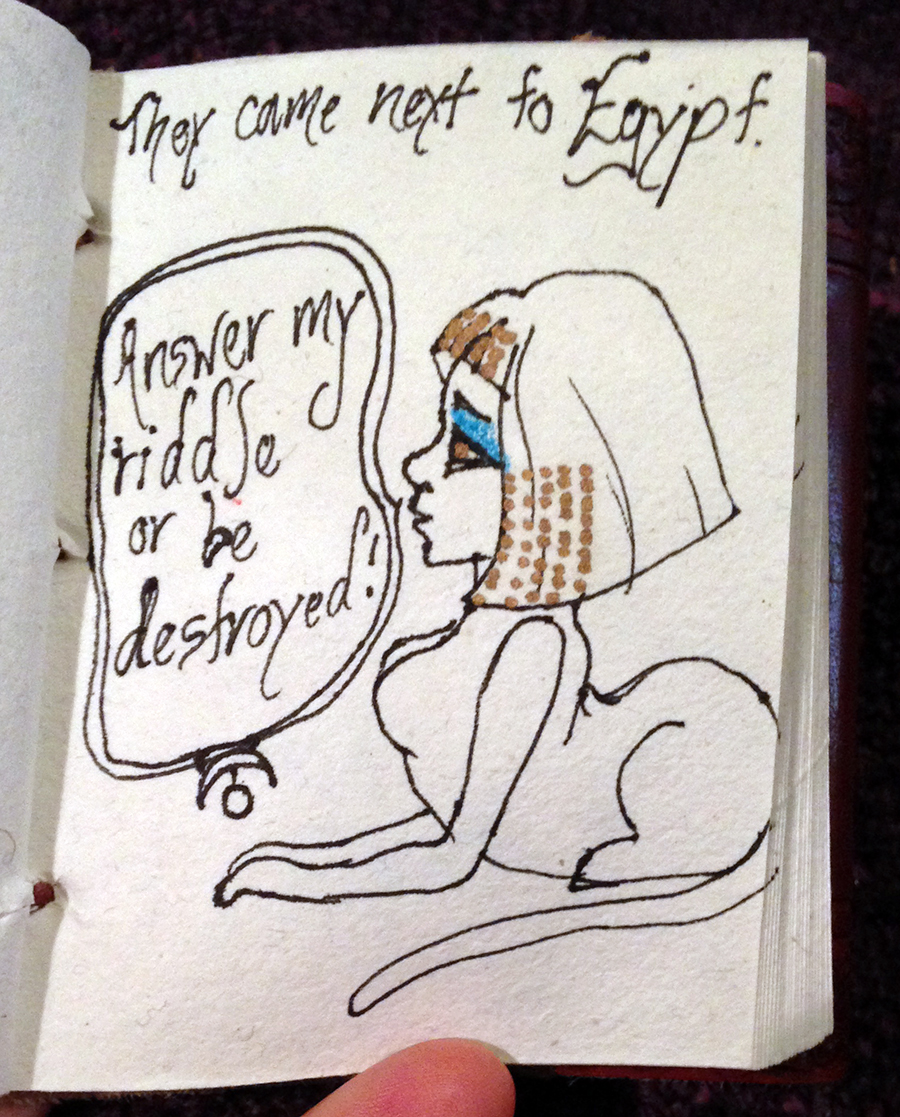 They came next to Egypt.
Answer my
riddle
or be
destroyed!